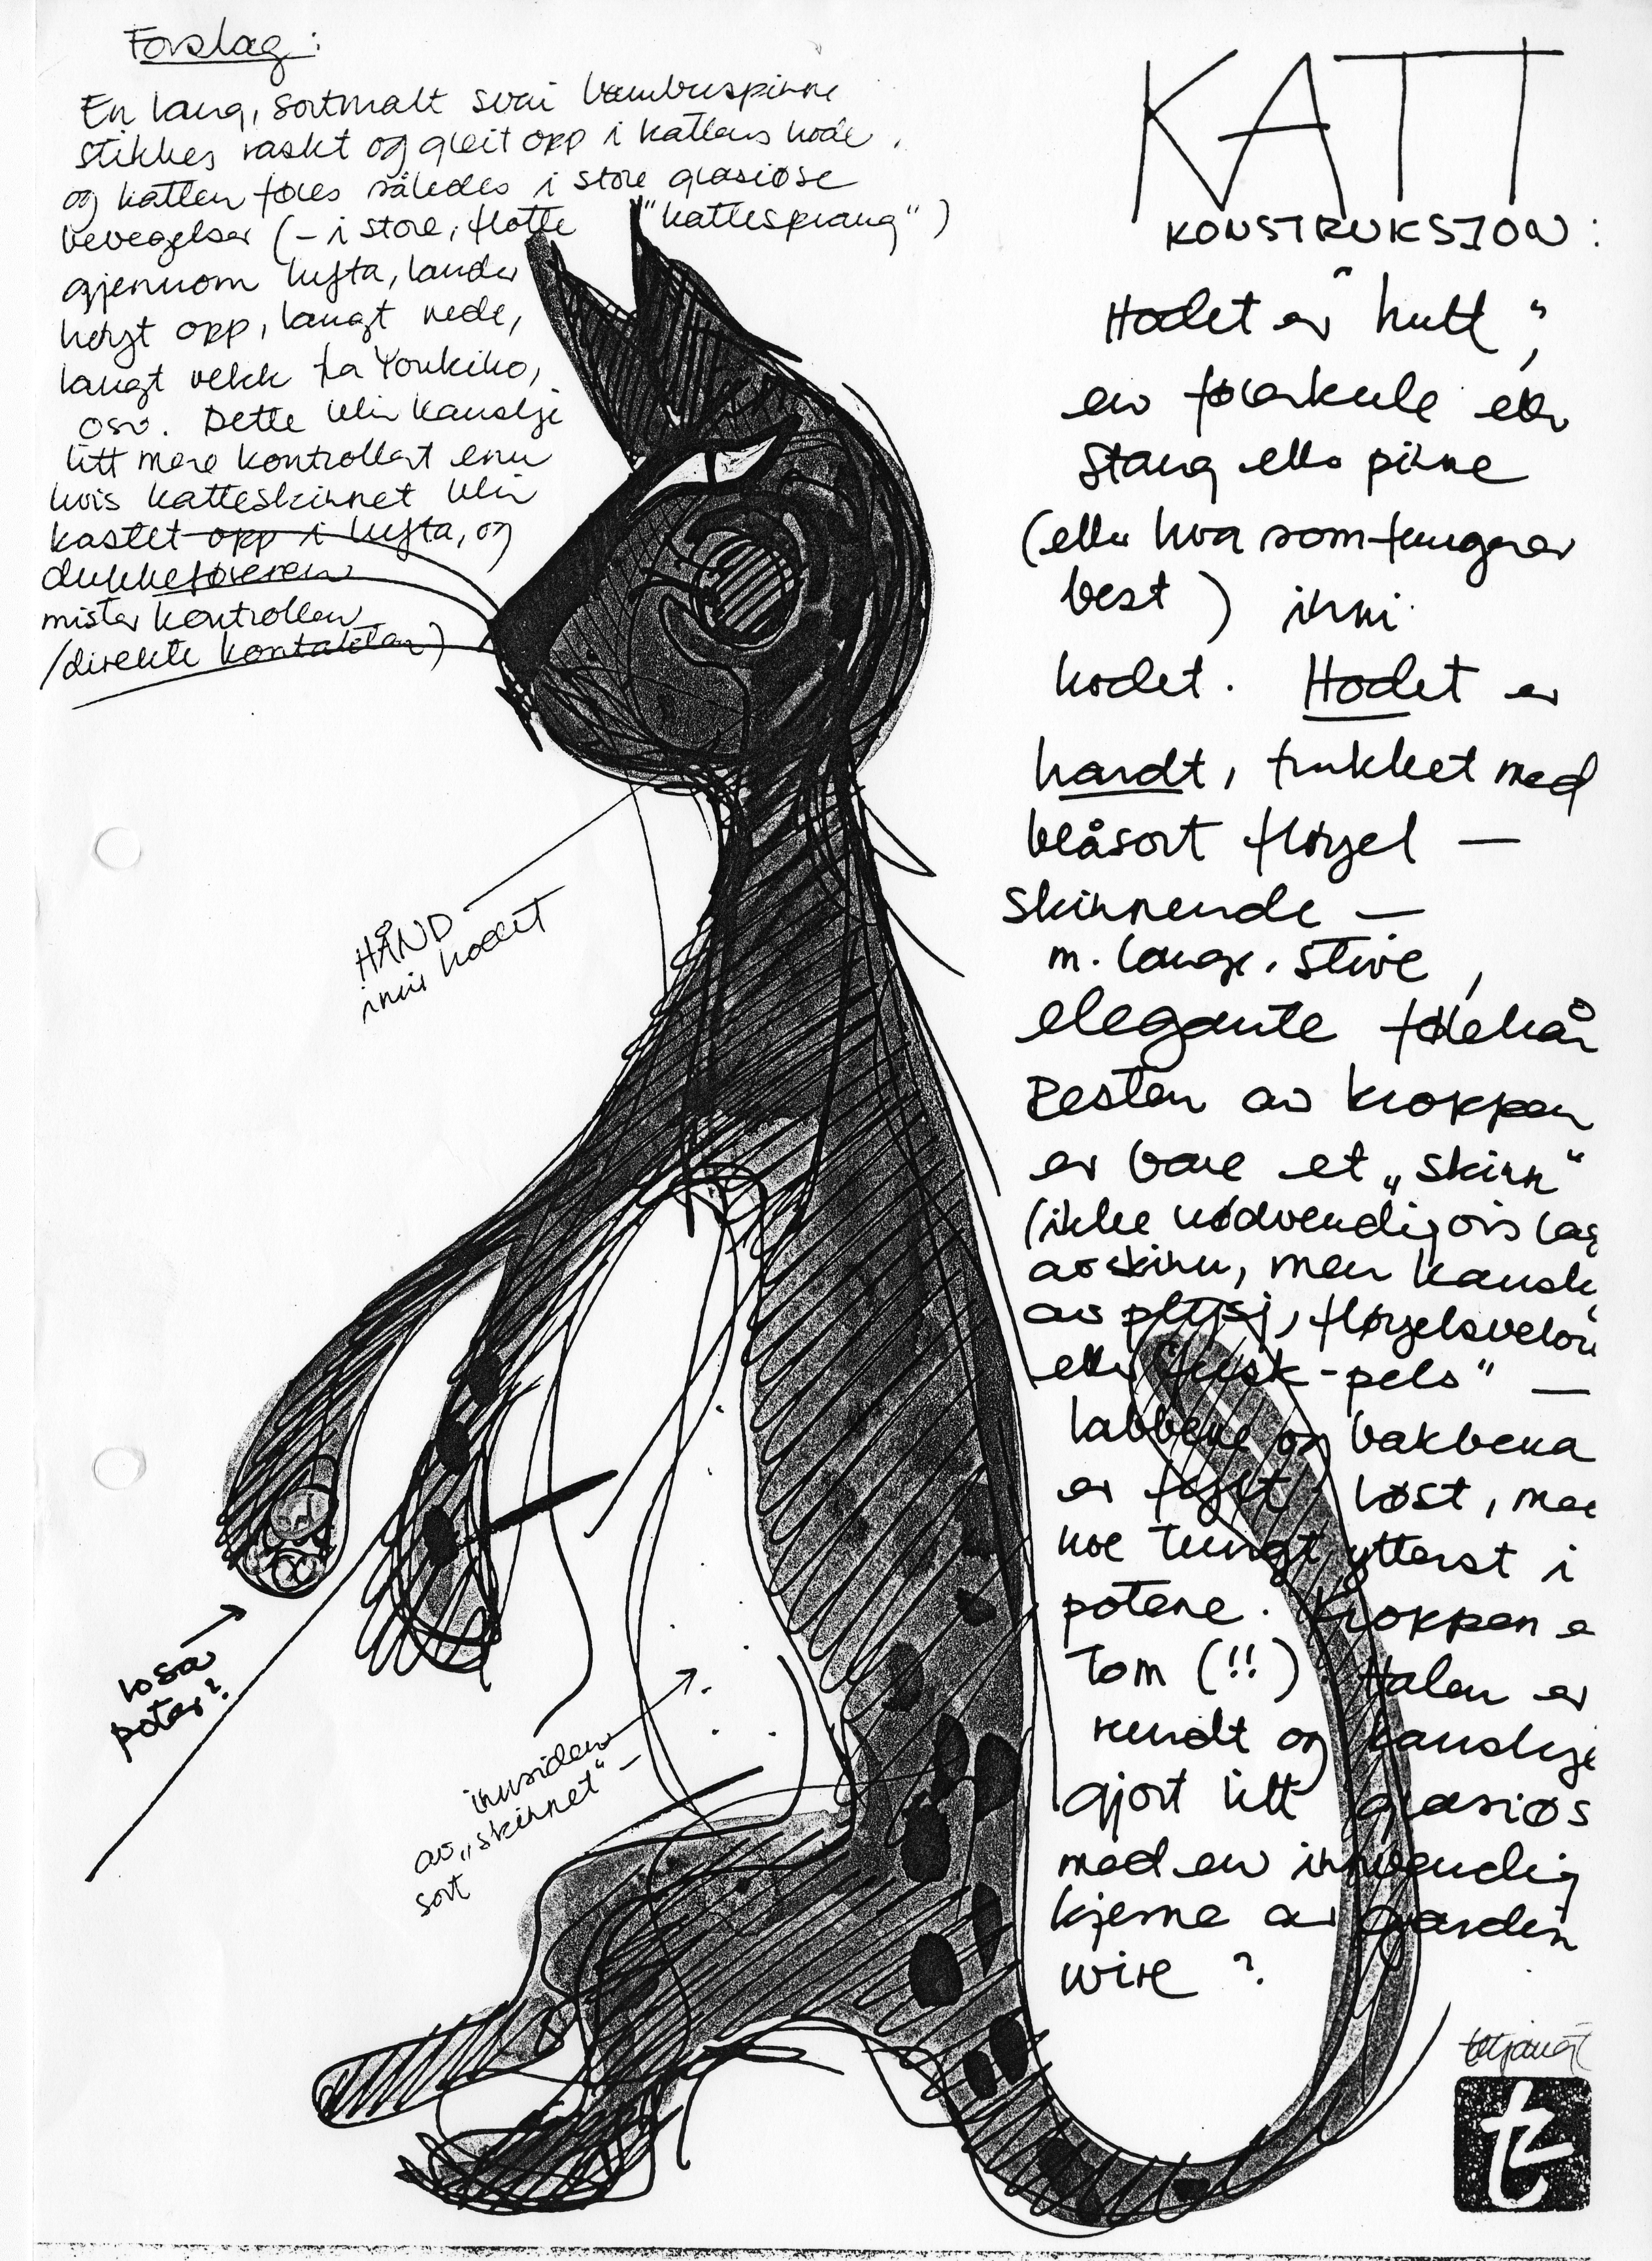 Forslag:
En lang, sortmalt svai bambuspinne
stikkes raskt og gleit opp i kattens hode,
og katten føres således i store grasiøse
bevegelser (– i store, flotte "kattesprang")
gjennom lufta, lander
høyt opp, langt nede,
langt vekk fra Youkiko,
osv. Dette blir kanskje
litt mere kontrollert enn
hvis katteskinnet blir
kastet opp i lufta, og
dukkeføreren
mister kontrollen
/direkte kontakten)
KATT
KONSTRUKSJON:
Hodet er "hult",
en førerkule eller
stang eller pinne
(eller hva som fungerer
best) inni
hodet. Hodet er
hardt, trukket med
blåsort fløyel —
skinnende —
m. lange, stive,
elegante følehår
Resten av kroppen
er bare et „skinn"
(ikke nødvendigvis lag
av skinn, men kanskj
av plysj, fløyelsvelou
eller "fusk-pels" —
labbene og bakbena
er festet løst, men
noe tungt ytterst i
potene. Kroppen e
tom (!!) Halen er
rundt og kanskje
gjort litt grasiøs
med en innvendig
kjerne av gardin
wire?
HÅND
inni hodet
løse
poter?
innsiden
av „skinnet" –
sort
tetjana
t